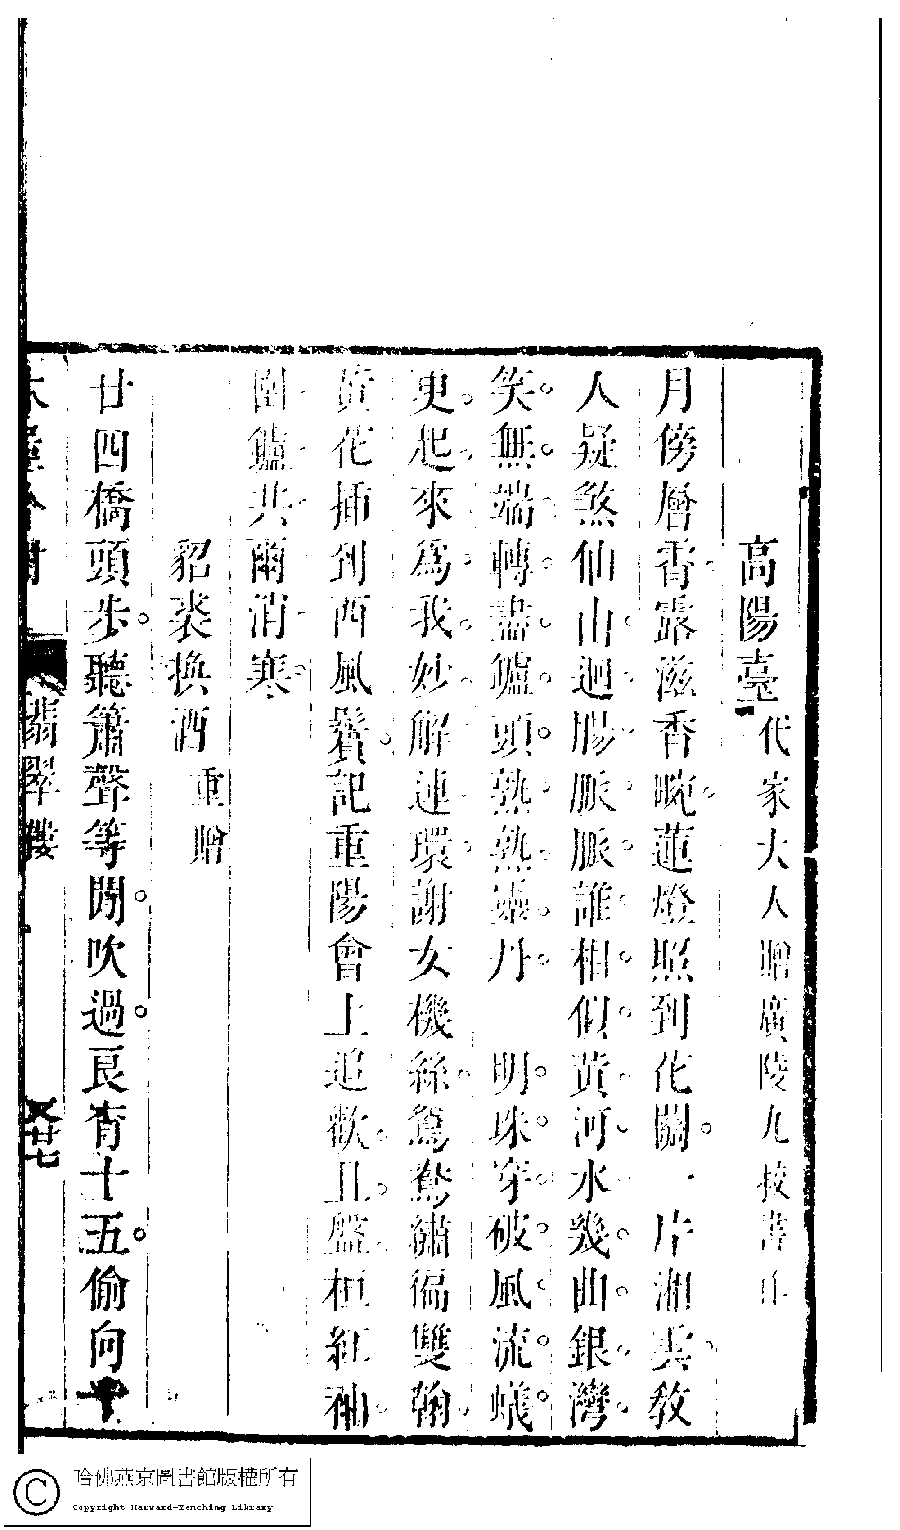 高陽臺代家大人贈廣陵九校書作
月傍層香露滋香畹蓮燈照到花關一片湘雲教
人疑煞仙山迴腸脈脈誰相似黃河水幾曲銀灣
笑無端轉盡爐頭熱熱靈丹　明珠穿破風流蟻
更起來為我妙解連環謝女機絲鴛鴦繡徧雙翰
黃花插到西風鬢記重陽會上追歡且盤桓紅袖
圍鑪共爾消寒
貂裘換酒重贈
廿四橋頭步聽簫聲等閒吹過良宵十五偷向
翡翠樓
廿七
哈佛燕京圖書館版權所有
Copyright Harvard-Yenching Library